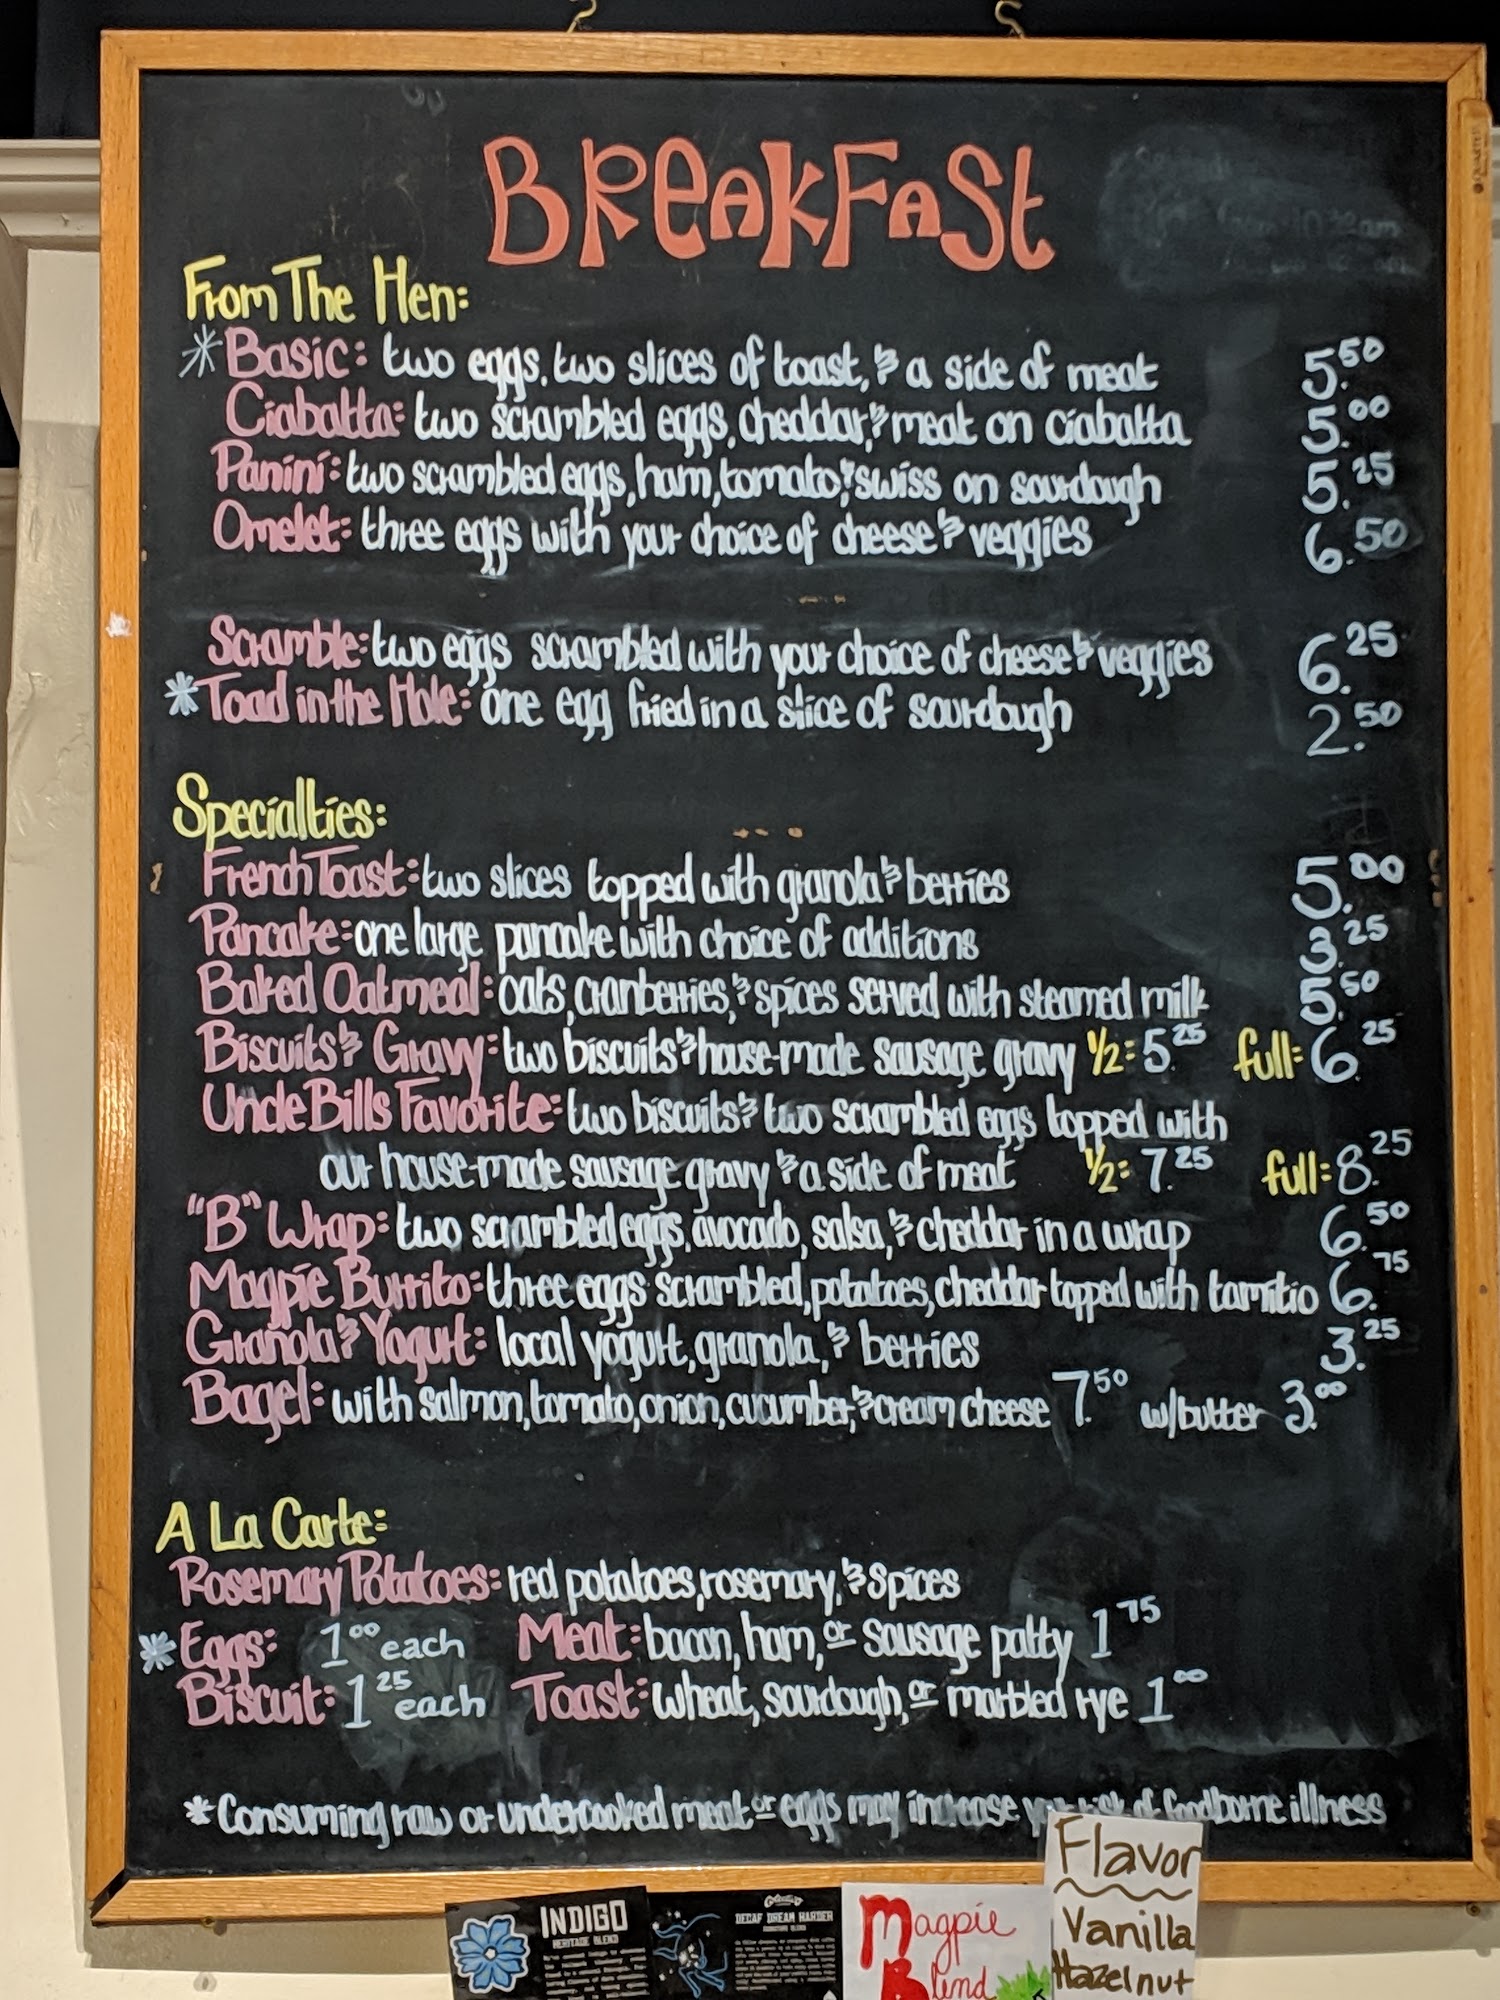 BREAKFAST
From The Hen:
* Basic: two eggs, two slices of toast, & a side of meat 5.50
Ciabatta: two scrambled eggs, cheddar, & meat on ciabatta 5.00
Panini: two scrambled eggs, ham, tomato, & swiss on sourdough 5.25
Omelet: three eggs with your choice of cheese & veggies 6.50
Scramble: two eggs scrambled with your choice of cheese & veggies 6.25
* Toad in the Hole: one egg fried in a slice of sourdough 2.50
Specialties:
French Toast: two slices topped with granola & berries 5.00
Pancake: one large pancake with choice of additions 3.25
Baked Oatmeal: oats, cranberries, & spices served with steamed milk 5.50
Biscuits & Gravy: two biscuits & house-made sausage gravy 1/2: 5.25 full: 6.25
Uncle Bills Favorite: two biscuits & two scrambled eggs topped with
our house-made sausage gravy & a side of meat 1/2: 7.25 full: 8.25
"B" Wrap: two scrambled eggs, avocado, salsa, & cheddar in a wrap 6.50
Magpie Burrito: three eggs scrambled, potatoes, cheddar topped with tamitio 6.75
Granola & Yogurt: local yogurt, granola, & berries 3.25
Bagel: with salmon, tomato, onion, cucumber, & cream cheese 7.50 w/butter 3.00
A La Carte:
Rosemary Potatoes: red potatoes, rosemary, & spices
* Eggs: 1.00 each Meat: bacon, ham, or sausage patty 1.75
Biscuit: 1.25 each Toast: wheat, sourdough, or marbled rye 1.00
* Consuming raw or undercooked meat or eggs may increase your risk of foodborne illness
INDIGO
HERITAGE BLEND
DECAF DREAM HARDER
Magpie
Blend
Flavor
Vanilla
Hazelnut